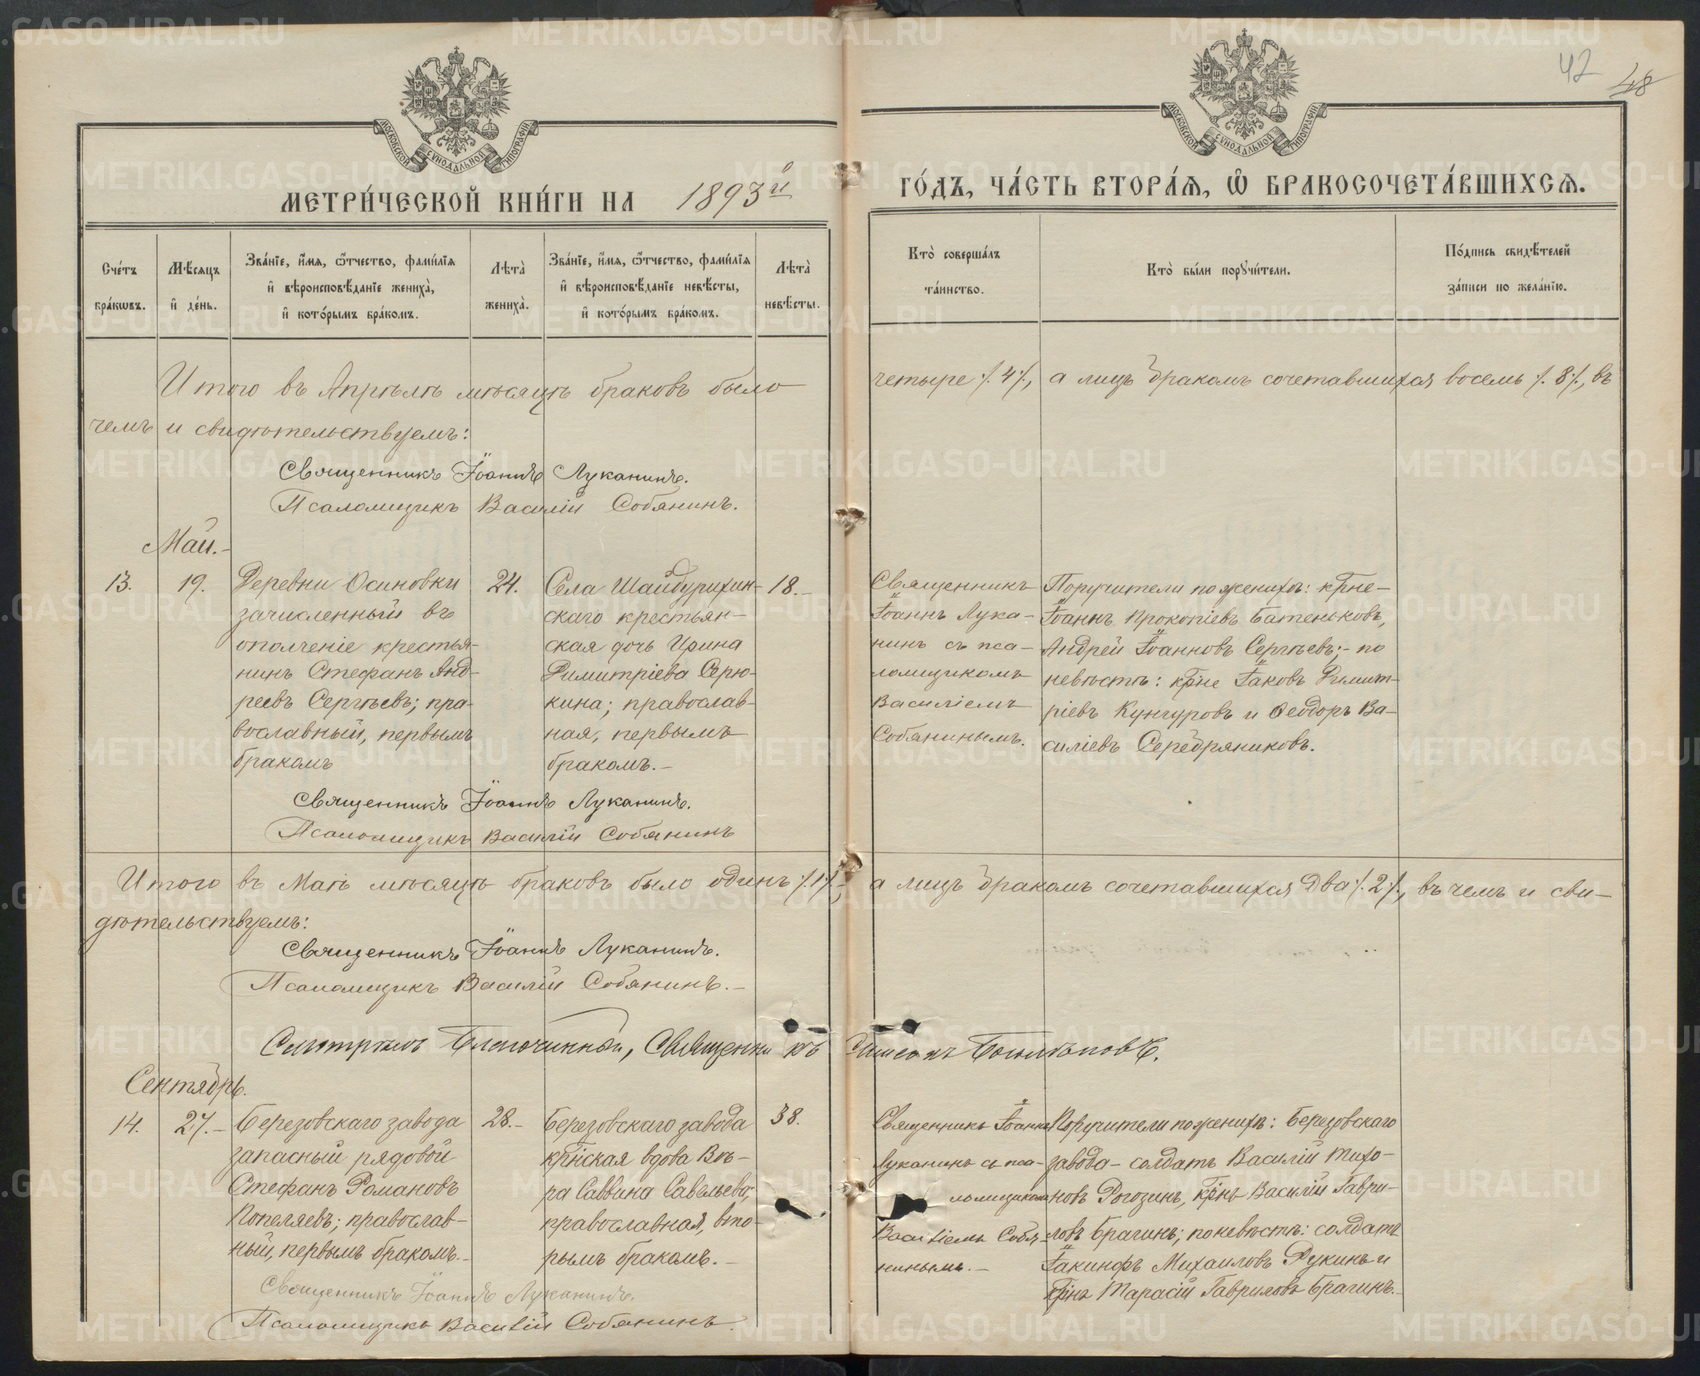 42 48
МОСКОВСКОЙ СѴНОДАЛЬНОЙ ТИПОГРАФІИ
МОСКОВСКОЙ СѴНОДАЛЬНОЙ ТИПОГРАФІИ
МЕТРИ́ЧЕСКОЙ КНИ́ГИ НА 1893й ГО́ДЪ, ЧА́СТЬ ВТОРА́Ѧ, Ѽ БРАКОСОЧЕТА́ВШИХСѦ.
Сче́тъ бра́кωвъ.
Мѣ́сяцъ и҆ де́нь.
Зва́нїе, и҆́мя, ѻ҆́тчество, фами́лїя
и҆ вѣроисповѣ́данїе жениха̀,
и҆ кото́рымъ бра́комъ.
Лѣта̀ жениха̀.
Зва́нїе, и҆́мя, ѻ҆́тчество, фами́лїя
и҆ вѣроисповѣ́данїе невѣ́сты,
и҆ кото́рымъ бра́комъ.
Лѣта̀ невѣ́сты.
Кто̀ соверша́лъ
та́инство.
Кто̀ бы́ли порꙋчи́тели.
По́дпись свидѣ́телей
за́писи по жела́нїю.
Итого въ Апрѣлѣ мѣсяцѣ браковъ было четыре /.4/., а лицъ бракомъ сочетавшихся восемь /.8/., въ
чемъ и свидѣтельствуемъ:
Священникъ Іоаннъ Луканинъ.
Псаломщикъ Василій Собянинъ.
Май.-
13.
19.
Деревни Осиновки
зачисленный въ
ополченіе крестья-
нинъ Стефанъ Анд-
реевъ Сергѣевъ; пра-
вославный, первымъ
бракомъ
24.
Села Шайдурихин-
скаго крестьян-
ская дочь Ирина
Димитріева Серю-
кина; православ-
ная, первымъ
бракомъ.-
18.-
Священникъ
Іоаннъ Лука-
нинъ съ пса-
ломщикомъ
Василіемъ
Собянинымъ.
Поручители по женихѣ: кр̃не-
Іоаннъ Прокопіевъ Батеньковъ,
Андрей Іоанновъ Сергѣевъ;- по
невѣстѣ: кр̃не Іаковъ Димит-
ріевъ Кунгуровъ и Ѳеодоръ Ва-
силіевъ Серебряниковъ.
Священникъ Іоаннъ Луканинъ.
Псаломщикъ Василій Собянинъ
Итого въ Маѣ мѣсяцѣ браковъ было одинъ /.1/.-, а лицъ бракомъ сочетавшихся два /.2/., въ чемъ и сви-
дѣтельствуемъ:
Священникъ Іоаннъ Луканинъ.
Псаломщикъ Василій Собянинъ.-
Смотрѣлъ Благочинный, Священникъ Симеонъ
Сентябрь.
14.
27.-
Березовскаго завода
запасный рядовой
Стефанъ Романовъ
Копеляевъ; православ-
ный, первымъ бракомъ.-
28.-
Березовскаго завода
кр̃нская вдова Вѣ-
ра Саввина Савельева;
православная, вто-
рымъ бракомъ.-
38.
Священникъ Іоаннъ
Луканинъ съ пса-
ломщикомъ
Василіемъ Собя-
нинымъ.-
Поручители по женихѣ: Березовскаго
завода- солдатъ Василій Тихо-
новъ Рогозинъ, кр̃нъ Василій Гаври-
ловъ Брагинъ; по невѣстѣ: солдатъ
Іакинфъ Михаиловъ Дукинъ и
кр̃нъ Тарасій Гавриловъ Брагинъ.-
Священникъ Іоаннъ Луканинъ.
Псаломщикъ Василій Собянинъ.
METRIKI.GASO-URAL.RU